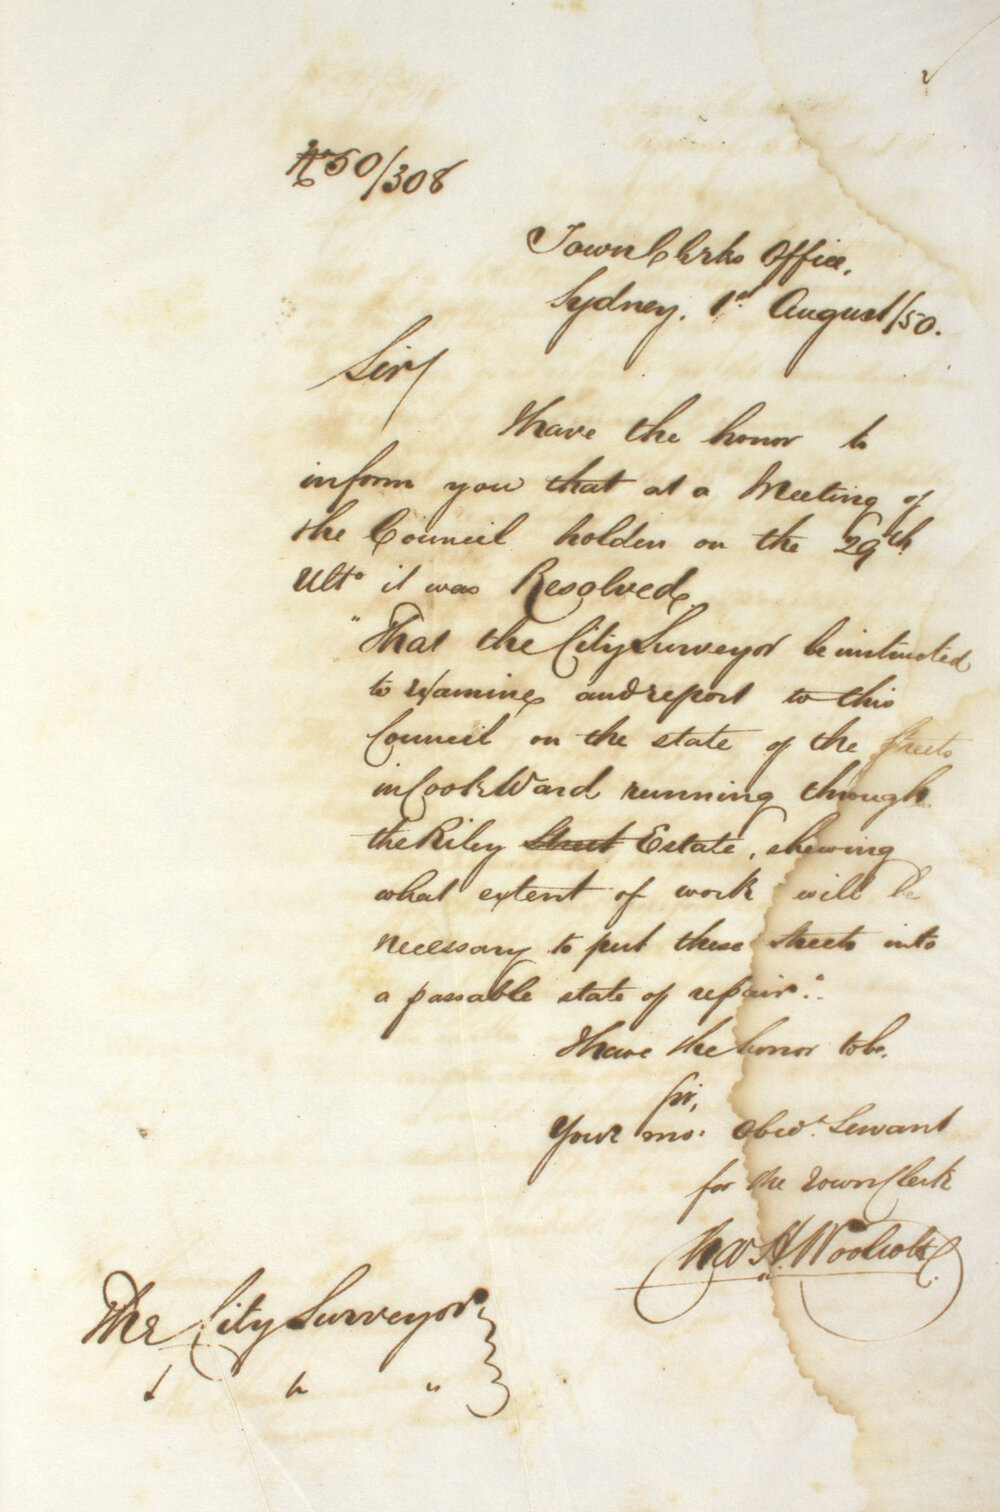 No 50/308
Town Clerks Office,
Sydney, 1st August/50.
Sir/
I have the honor to
inform you that at a Meeting of
the Council holden on the 29th
Ulto it was Resolved,
"That the City Surveyor be instructed
to examine and report to this
Council on the state of the Streets
in Cook Ward running through
the Riley Street Estate, shewing
what extent of work will be
necessary to put these Streets into
a passable state of repair."
I have the honor to be,
Sir,
Your mo. Obedt. Servant
for the Town Clerk
Thos H. Woolcott
The City Surveyor
" " "